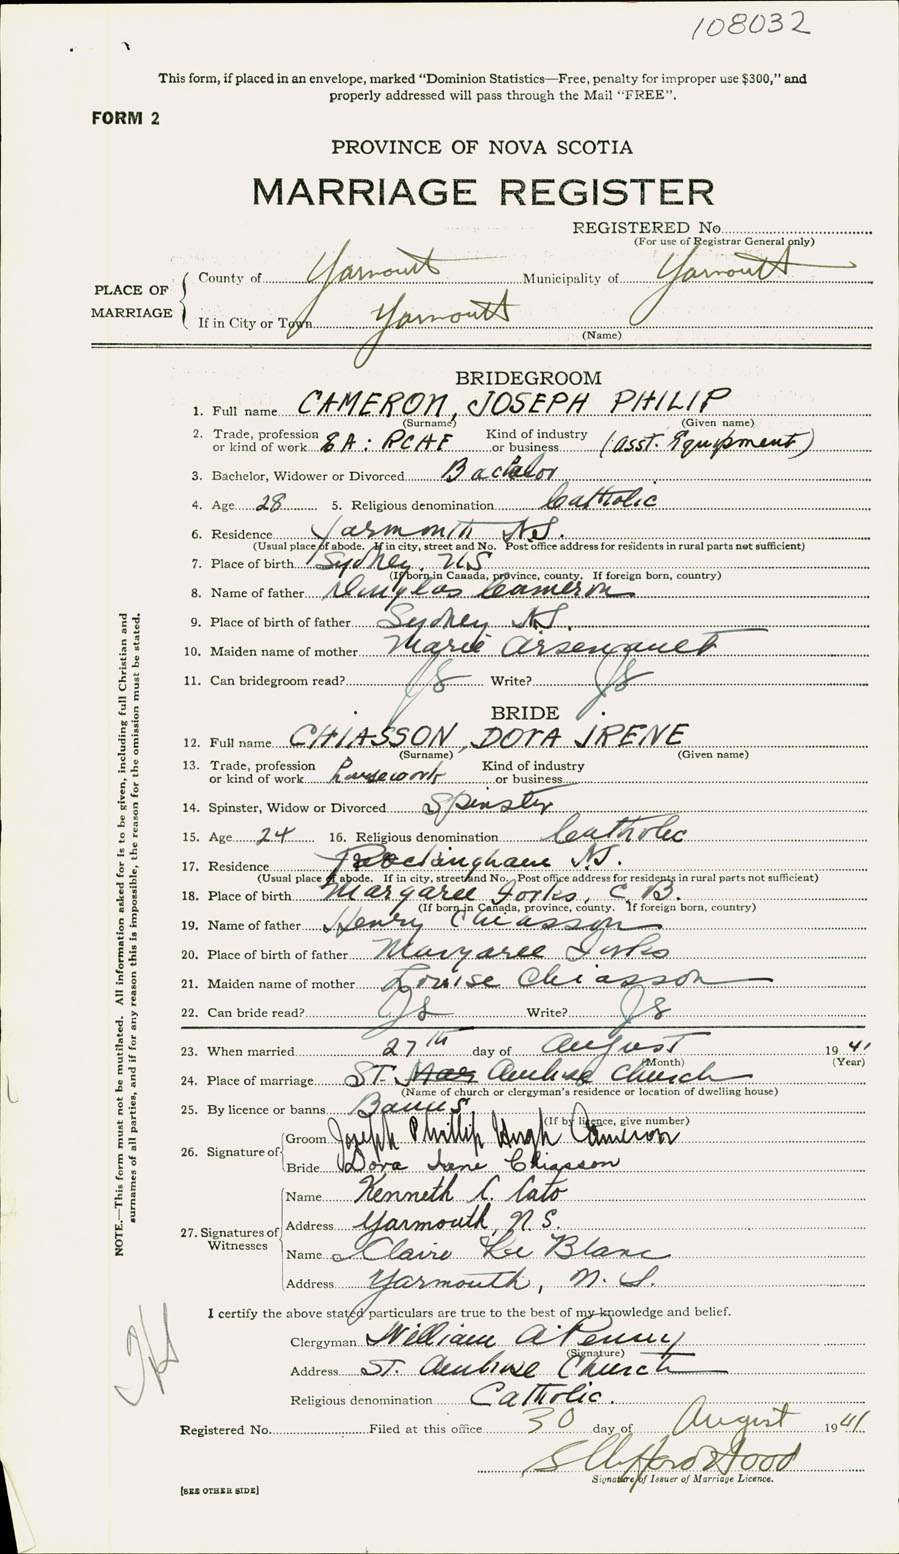 108032
This form, if placed in an envelope, marked “Dominion Statistics—Free, penalty for improper use $300,” and
properly addressed will pass through the Mail “FREE”.
FORM 2
PROVINCE OF NOVA SCOTIA
MARRIAGE REGISTER
REGISTERED No.
(For use of Registrar General only)
PLACE OF MARRIAGE
County of Yarmouth Municipality of Yarmouth
If in City or Town Yarmouth
(Name)
BRIDEGROOM
1. Full name CAMERON, JOSEPH PHILIP
(Surname) (Given name)
2. Trade, profession or kind of work EA: RCAF Kind of industry or business (asst. Equipment)
3. Bachelor, Widower or Divorced Bachelor
4. Age 28 5. Religious denomination Catholic
6. Residence Yarmouth N.S.
(Usual place of abode. If in city, street and No. Post office address for residents in rural parts not sufficient)
7. Place of birth Sydney. NS
(If born in Canada, province, county. If foreign born, country)
8. Name of father Douglas Cameron
9. Place of birth of father Sydney N.S.
10. Maiden name of mother Marie Arsenault
11. Can bridegroom read? Yes Write? Yes
BRIDE
12. Full name CHIASSON, DORA IRENE
(Surname) (Given name)
13. Trade, profession or kind of work housework Kind of industry or business
14. Spinster, Widow or Divorced Spinster
15. Age 24 16. Religious denomination Catholic
17. Residence Rockingham N.S.
(Usual place of abode. If in city, street and No. Post office address for residents in rural parts not sufficient)
18. Place of birth Margaree Forks, C.B.
(If born in Canada, province, county. If foreign born, country)
19. Name of father Henry Chiasson
20. Place of birth of father Margaree Forks
21. Maiden name of mother Louise Chiasson
22. Can bride read? Yes Write? Yes
23. When married 27th day of August 1941
(Month) (Year)
24. Place of marriage ST. Mar Ambrose Church
(Name of church or clergyman's residence or location of dwelling house)
25. By licence or banns Banns
(If by licence, give number)
26. Signature of
Groom Joseph Phillip Hugh Cameron
Bride Dora Irene Chiasson
27. Signatures of Witnesses
Name Kenneth C. Cato
Address Yarmouth, N.S.
Name Claire Le Blanc
Address Yarmouth, N.S.
I certify the above stated particulars are true to the best of my knowledge and belief.
Clergyman William A. Penny
(Signature)
Address ST. Ambrose Church
Religious denomination Catholic.
Registered No. Filed at this office 30 day of August 1941
S Clifford Hood
Signature of Issuer of Marriage Licence.
[SEE OTHER SIDE]
NOTE.—This form must not be mutilated. All information asked for is to be given, including full Christian and
surnames of all parties, and if for any reason this is impossible, the reason for the omission must be stated.